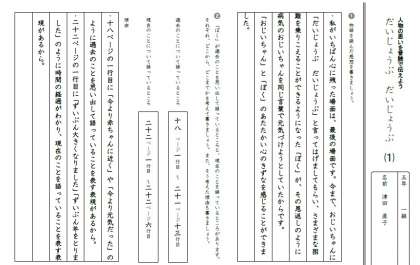 人物の思いを音読で伝えよう
だいじょうぶ だいじょうぶ (1)
五年 一組
名前 津田 直子
① 物語を読んだ感想を書きましょう。
私がいちばん心に残った場面は、最後の場面です。今まで、おじいちゃんに
「だいじょうぶ だいじょうぶ」と言ってはげましてもらい、さまざまな困
難を乗りこえることができるようになった「ぼく」が、その恩返しのように
病気のおじいちゃんを同じ言葉で元気づけようとしていたからです。
「おじいちゃん」と「ぼく」のあたたかい心のきずなを感じることができま
した。
② 「ぼく」が過去のことを思い出して語っているところと、現在のことを語っているところがあります。
それぞれ、どこから、どこまでかを考えて書きましょう。また、そう考えた理由も書きましょう。
過去のことについて語っているところ
十八ページ一行目〜二十一ページ十三行目
現在のことについて語っているところ
二十二ページ一行目〜二十三ページ六行目
理由
・十八ページの一行目に「今より赤ちゃんに近く」や「今より元気だった」の
ように過去のことを思い出して語っていることを表す表現があるから。
・二十二ページの一行目に「ずいぶん大きくなりました」「ずいぶん年をとりま
した」のように時間の経過がわかり、現在のことを語っていることを表す表
現があるから。